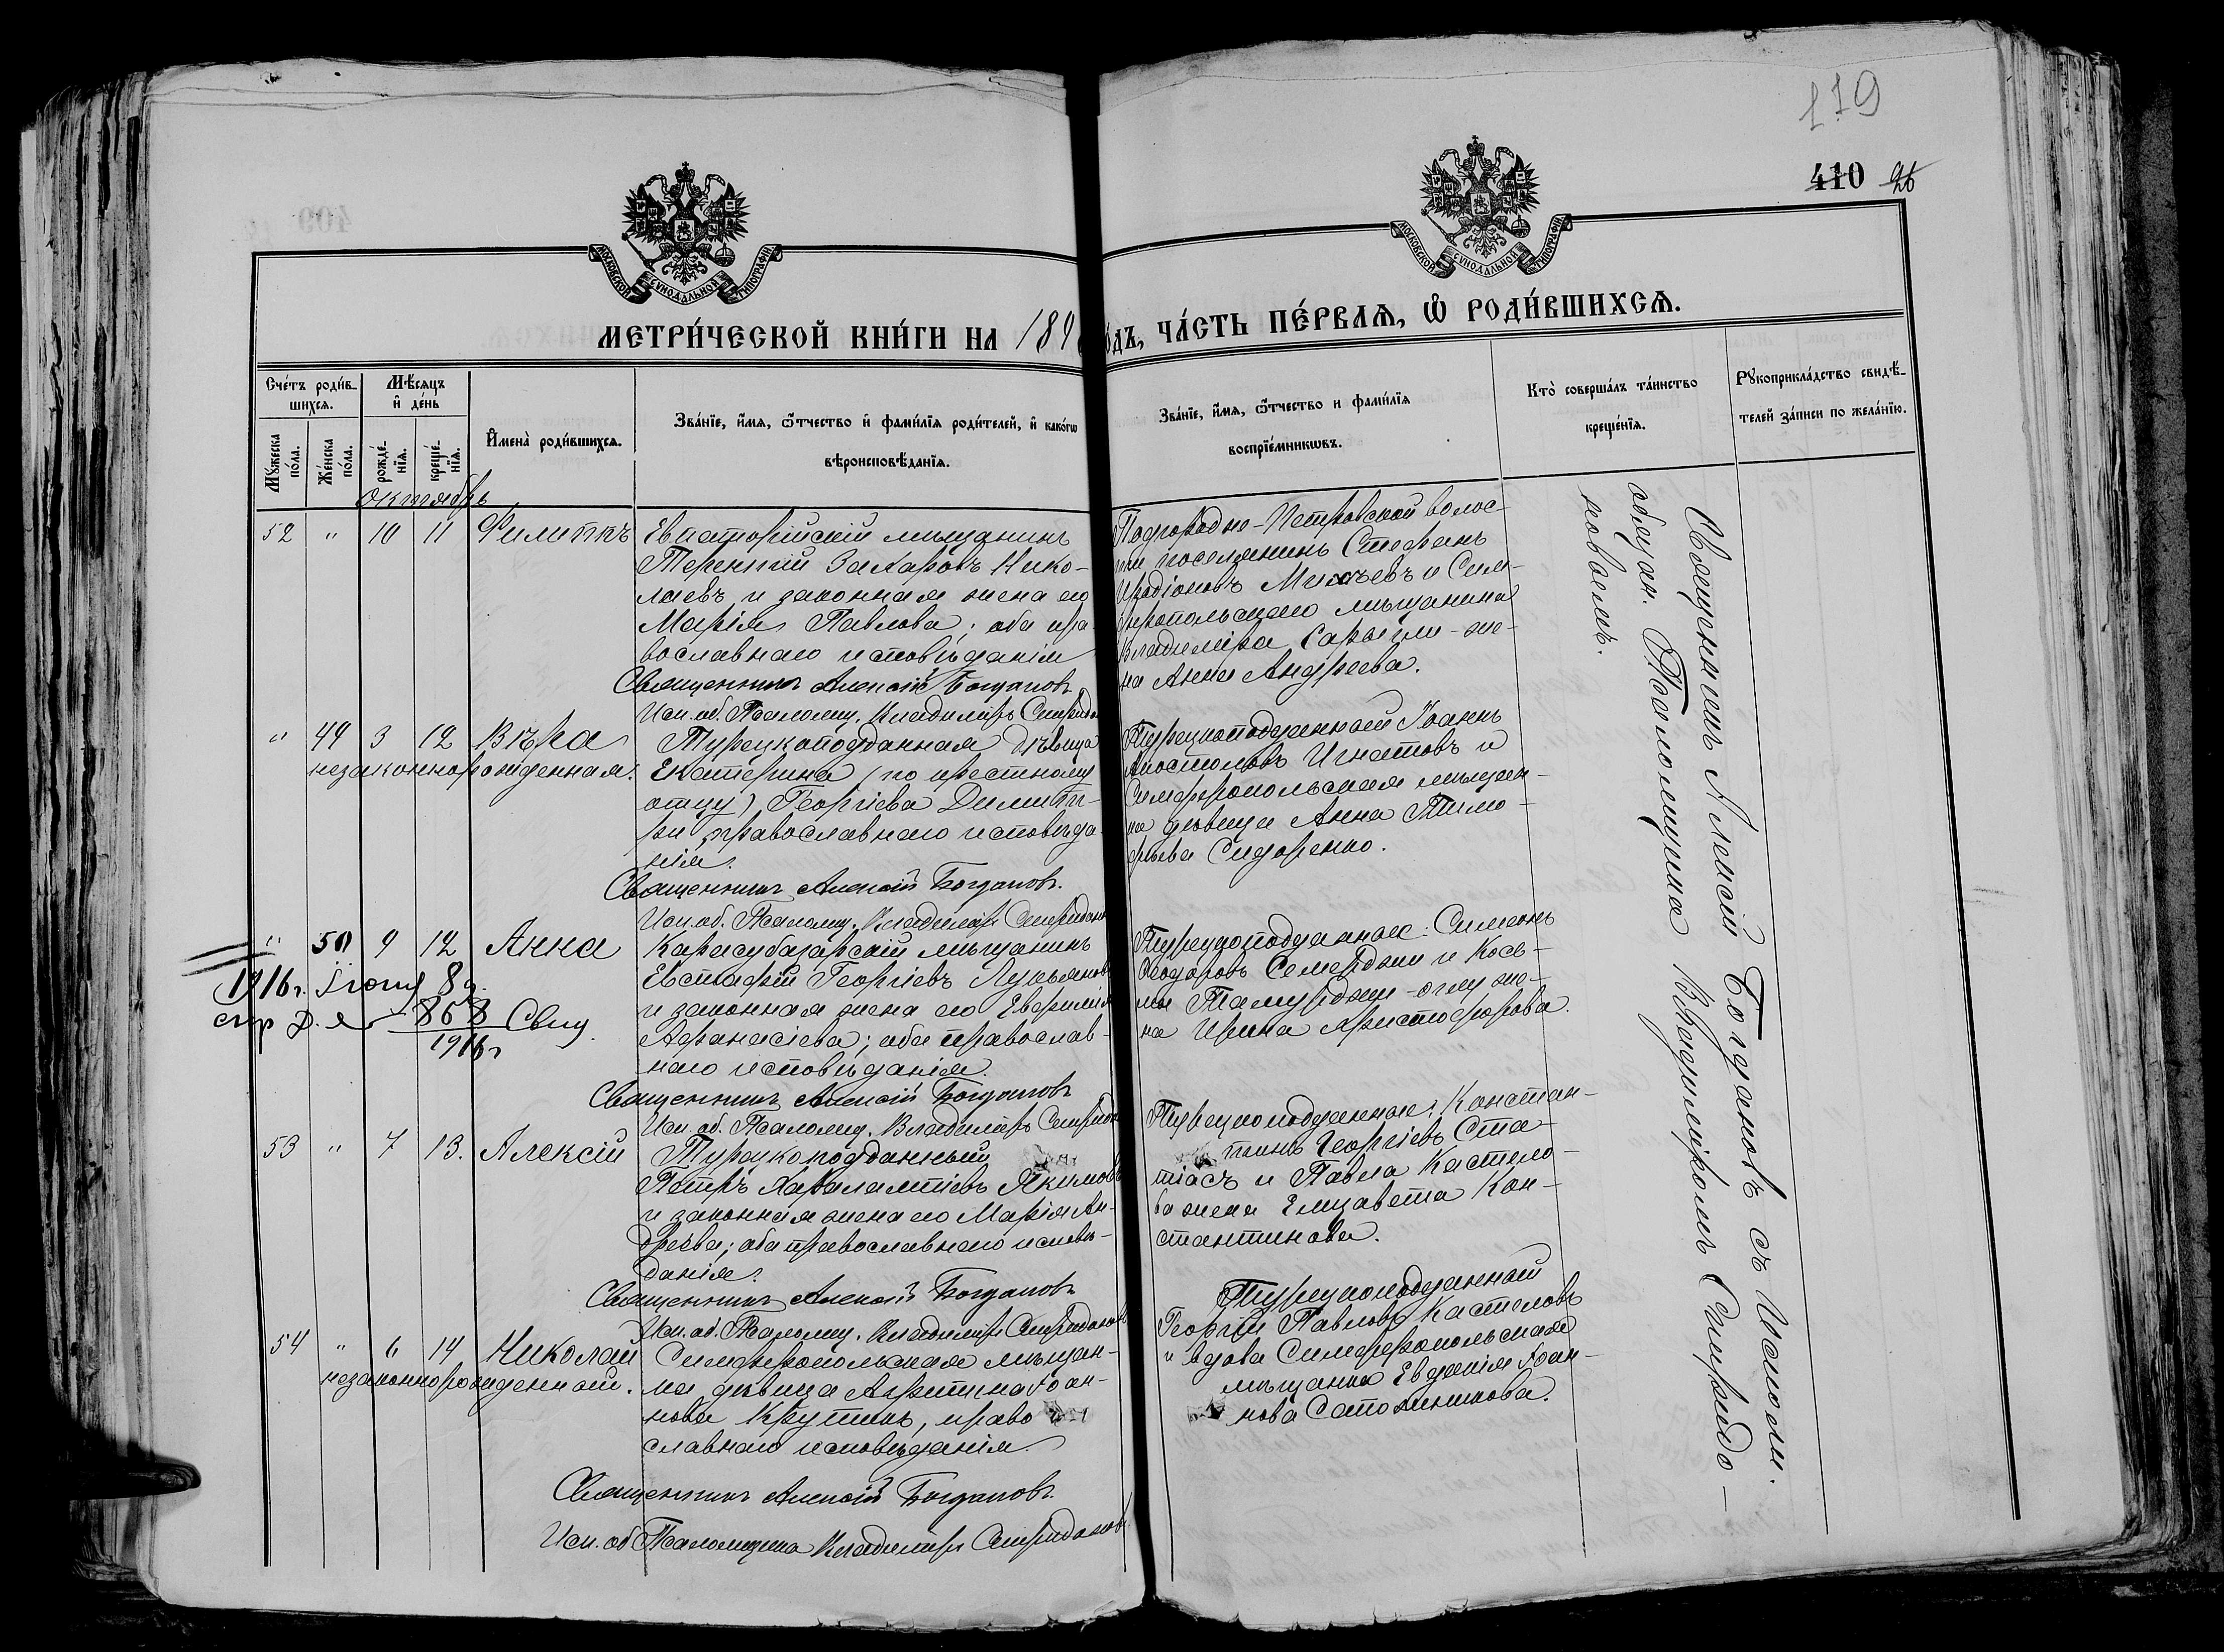 179
410 26
МОСКОВСКОЙ СѴНОДАЛЬНОЙ ТИПОГРАФІИ
МОСКОВСКОЙ СѴНОДАЛЬНОЙ ТИПОГРАФІИ
МЕТРИ́ЧЕСКОЙ КНИ́ГИ НА 189
о́дъ, ЧА́СТЬ ПЕ́РВАѦ, Ѽ РОДИ́ВШИХСѦ.
Сче́тъ роди́в-
шихсѧ.
Мѣ́сѧцъ
и҆ де́нь
Мꙋ́жеска
по́ла.
Же́нска
по́ла.
рожде́-
нїѧ.
креще́-
нїѧ.
И҆мена̀ роди́вшихсѧ.
Зва́нїе, и҆́мѧ, ѻ҆́тчество и҆ фами́лїѧ роди́телей, и҆ како́гѡ
вѣроисповѣ́данїѧ.
Зва́нїе, и҆́мѧ, ѻ҆́тчество и фами́лїѧ
воспрїе́мникѡвъ.
Кто̀ соверша́лъ та́инство
креще́нїѧ.
Рꙋкоприкла́дство свидѣ́-
телей за́писи по жела́нїю.
Октябрь
52 " 10 11 Филиппъ
Евпаторійскій мѣщанинъ
Терентій Захаровъ Нико-
лаевъ и законная жена его
Марія Павлова; оба пра-
вославнаго исповѣданія
Священникъ Алексій Богдановъ
Исп. об. Псаломщ. Владиміръ Спиридо
Подгородно-Петровской волос-
ти поселянинъ Стефанъ
Иродіоновъ Михѣевъ и Сим-
феропольскаго мѣщанина
Владиміра Сарыгли-же-
на Анна Андреева.
" 49 3 12 Вѣра
незаконнорожденная.
Турецкоподданная дѣвица
Екатерина (по крестному
отцу) Георгіева Димит-
ри, православнаго исповѣда-
нія.
Священникъ Алексій Богдановъ.
Исп. об. Псаломщ. Владиміръ Спиридоно
Турецкоподданный Іоаннъ
Апостоловъ Игнатовъ и
Симферопольская мѣщан-
ка дѣвица Анна Тимо-
фѣева Сидоренко.
" 50 9 12 Анна
1916 г. Іюня 8 д.
858 Свид.
1916 г
Карасубазарскій мѣщанинъ
Евстафій Георгіевъ Лукьянов
и законная жена его Евфимія
Афанасіева; оба православ-
наго исповѣданія.
Священникъ Алексій Богдановъ
Исп. об. Псаломщ. Владиміръ Спиридо
Турецкоподданные: Симеонъ
Ѳеодоровъ Семерджи и Кось-
мы Тамурджи-оглу же-
на Ирина Христофорова.
53 " 7 13. Алексій
Турецкоподданный
Петръ Харалампіевъ Якимовъ
и законная жена его Марія Ан-
дреева; оба православнаго исповѣ-
данія.
Священникъ Алексій Богдановъ
Исп. об. Псаломщ. Владиміръ Спиридонов
Турецкоподданные: Констан-
тинъ Георгіевъ Ста-
тіасъ и Павла Кастело-
ва жена Елизавета Кон-
стантинова.
54 " 6 14 Николай
незаконнорожденный.
Симферопольская мѣщан-
ка дѣвица Агриппина Іоан-
нова Крутикъ, право
славнаго исповѣданія.
Священникъ Алексій Богдановъ.
Исп. об Псаломщика Владиміръ Спиридоновъ
Турецкоподданный
Георгій Павловъ Кастеловъ
и вдова Симферопольская
мѣщанка Евдокія Іоан-
нова Сапожникова.
Священникъ Алексій Богдановъ съ Исполн.
обязан. Псаломщика Владиміромъ Спиридо-
новымъ.